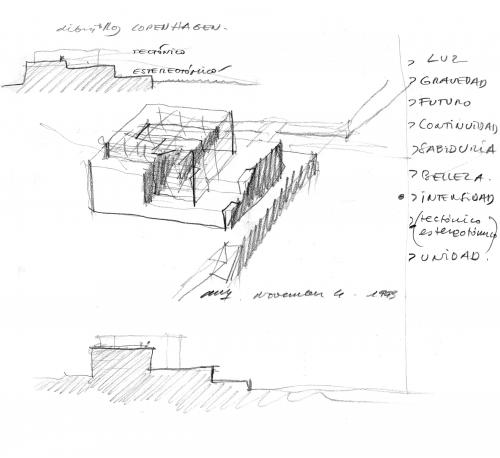 COPENHAGEN.
TECTÓNICO
ESTEREOTÓMICO
> LUZ
> GRAVEDAD
> FUTURO
> CONTINUIDAD
> SABIDURÍA
> BELLEZA.
• > INTENSIDAD
> (tectónico
estereotómico)
> UNIDAD.
november 4. 1993